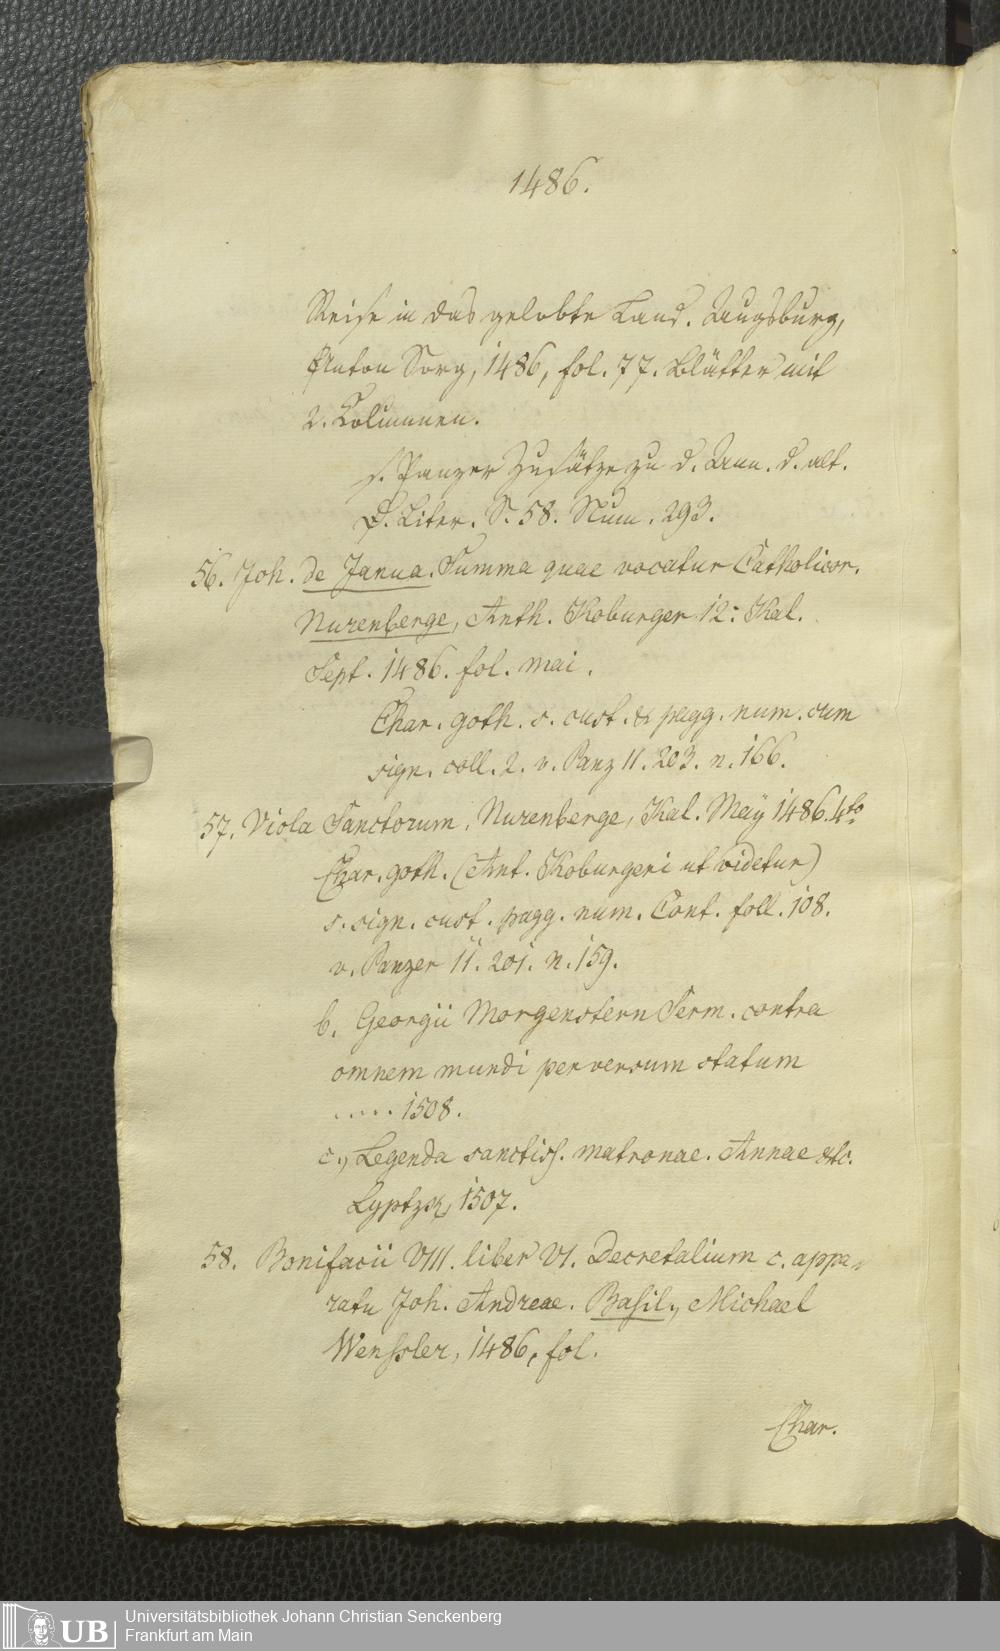 1486.
Reise in das gelobte Land. Augsburg,
Anton Sorg, 1486, fol. 77. Blätter mit
2. Columnen.
s. Panzer Zusätze zu d. Ann. d. alt.
D. Liter. S. 58. Num. 293.
56. Joh. de Janua. Summa quae vocatur Catholicon.
Nurenberge, Anth. Koburger 12: Kal.
Sept. 1486. fol. mai.
Char. goth. s. cust. & pagg. num. cum
sign. coll. 2. v. Panz II. 203. n. 166.
57. Viola Sanctorum. Nurenberge, Kal. Maÿ 1486. 4to
Char. goth. (Ant. Koburgeri ut videtur)
s. sign. cust. pagg. num. Cont. foll. 108.
v. Panzer II. 201. n. 159.
b. Georgii Morgenstern Serm. contra
omnem mundi perversum statum
..... 1508.
c., Legenda sanctiss. matronae. Annae etc.
Lyptzk, 1507.
58. Bonifacii VIII. liber VI. Decretalium c. appa-
ratu Joh. Andreae. Basil., Michael
Wenssler, 1486, fol.
Char.
UB
Universitätsbibliothek Johann Christian Senckenberg
Frankfurt am Main